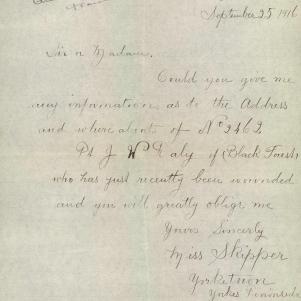 September 25 1916
Sir or Madam.
Could you give me
any information as to the Address
and where abouts of No 2462
Pt J W Daly of (Black Forest)
who has just recently been wounded
and you will greatly oblige me
Yours Sincerly
Miss Skipper
Yorketown
Yorkes Peninsula